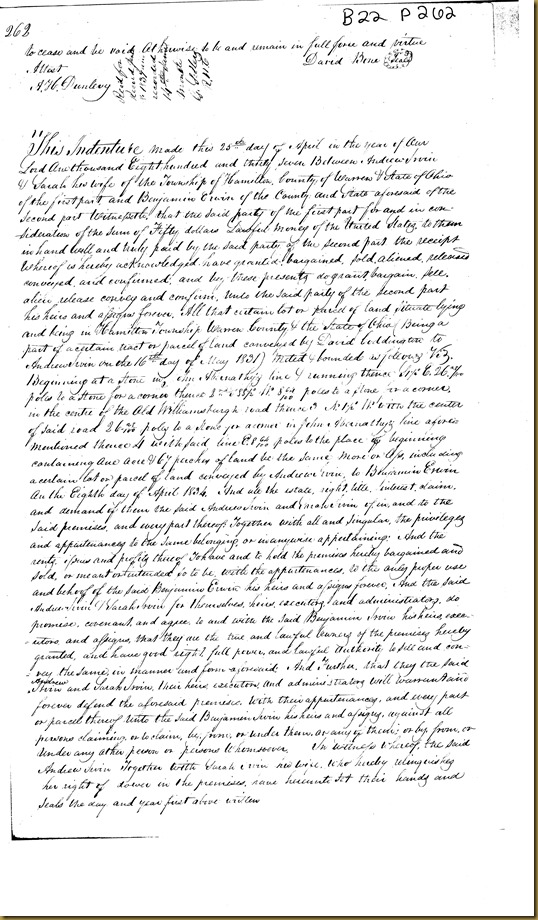 B22 P262
262
to cease and be void otherwise to be and remain in full force and virtue
Attest David Bone Seal
A. H. Dunlevy
This Indenture made this 25th day of April in the year of Our
Lord One thousand Eight hundred and thirty seven Between Andrew Irvin
& Sarah his wife of the Township of Hamilton, County of Warren & State of Ohio
of the first part and Benjamin Erwin of the County and State aforesaid of the
second part Witnesseth, that the said party of the first part for and in con-
sideration of the sum of Fifty dollars Lawful money of the United States to them
in hand well and truly paid by the said party of the second part the receipt
whereof is hereby acknowledged have granted, bargained, sold, aliened, released
conveyed and confirmed, and by these presents do grant, bargain, sell,
alien, release convey and confirm, unto the said party of the second part
his heirs and assigns forever, All that certain lot or parcel of land situate lying
and being in Hamilton Township Warren County & the State of Ohio (Being a
part of a certain tract or parcel of land conveyed by David
Andrew Irvin on the 16th day of May 1831) Meted & bounded as follows Viz.
Beginning at a Stone in line & running thence
poles to a Stone for a corner thence poles to a stone for a corner,
in the centre of the Old Williamsburgh road thence 3 with the center
of said road poles to a Stone for a corner in John line afore
mentioned thence 4 with said line poles to the place of beginning
containing One acre & 67 perches of land be the same more or less, including
a certain lot or parcel of land conveyed by Andrew Irvin, to Benjamin Erwin
On the Eighth day of April 1834. And all the estate, right, title, interest, claim,
and demand of them the said Andrew Irvin and Sarah Irvin of, in, and to the
said premises, and every part thereof, Together with all and singular, the privileges
and appurtenances to the same belonging or in any wise appertaining: And the
rents, issues and profits thereof To have and to hold the premises hereby bargained and
sold, or meant or intended so to be, with the appurtenances, to the only proper use
and behoof of the said Benjamin Erwin his heirs and assigns forever, And the said
Andrew Irvin & Sarah Irvin for themselves, heirs, executors, and administrators, do
promise, covenant, and agree, to and with the said Benjamin Irvin his heirs, exec-
utors and assigns, that they are the true and lawful owners of the premises hereby
granted, and have good right, full power, and lawful Authority to sell and con-
vey the same, in manner and form aforesaid. And Further, that they the said
Andrew
Irvin and Sarah Irvin, their heirs, executors, and administrators will warrant and
forever defend the aforesaid premises With their appurtenances, and every part
or parcel thereof Unto the said Benjamin Irvin his heirs and assigns, against all
persons claiming, or to claim, by, from, or under them, or any of them; or by, from, or
under any other person or persons Whomsoever. In witness whereof, the said
Andrew Irvin Together With Sarah Irvin his wife, who hereby relinquishes
her right of dower in the premises, have hereunto Set their hands and
Seals the day and year first above written